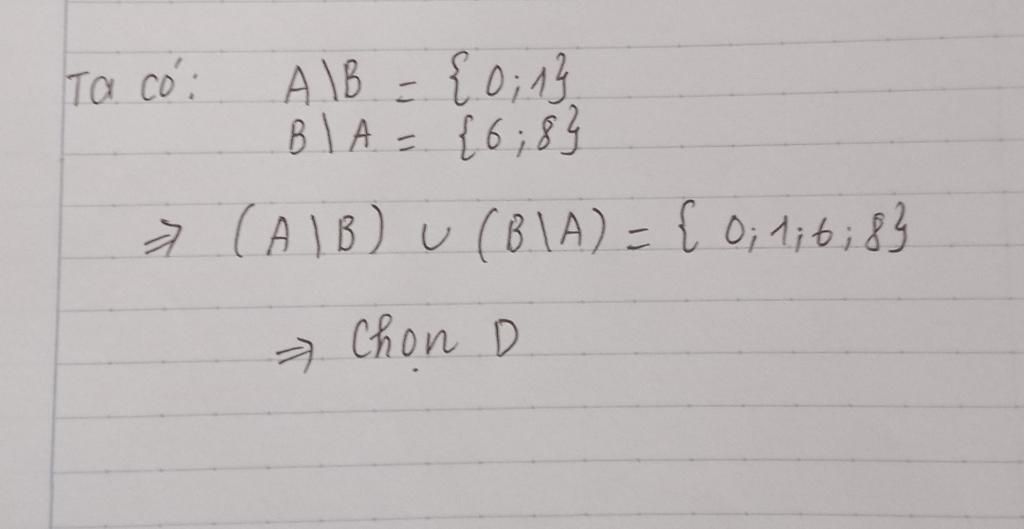 Ta có: A\B = {0;1}
B\A = {6;8}
⇒ (A\B) ∪ (B\A) = {0;1;6;8}
⇒ Chọn D